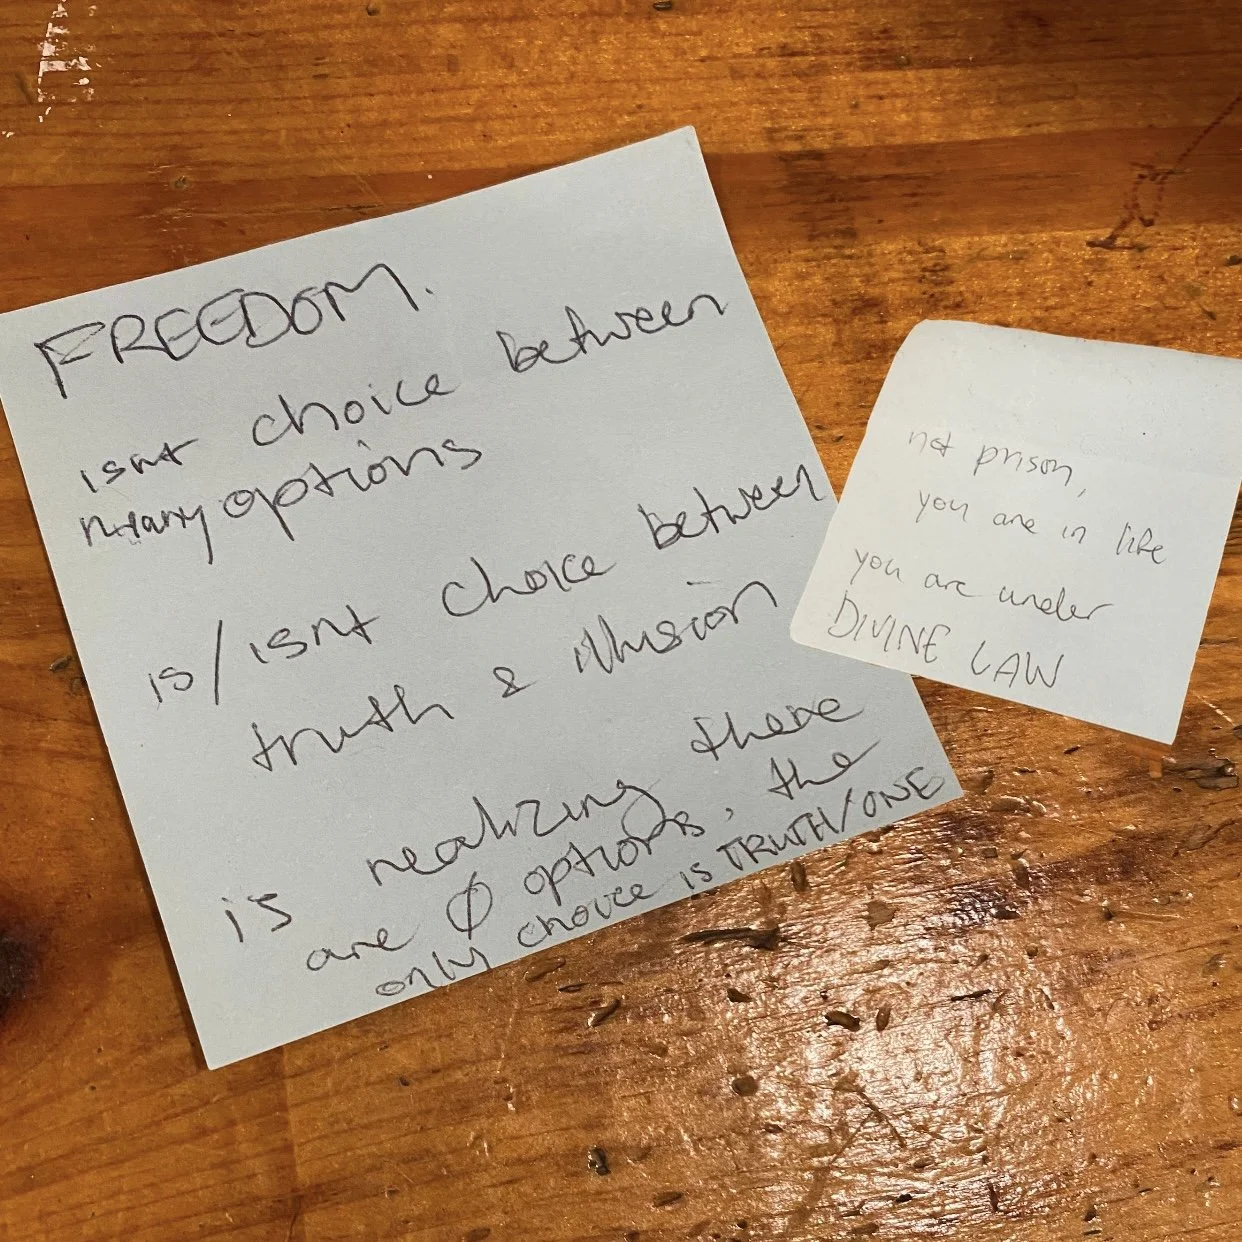 FREEDOM.
isnt choice between
many options
is/isnt choice between
truth & illusion
is realizing there
are Ø options, the
only choice is TRUTH/ONE
not prison,
you are in life
you are under
DIVINE LAW